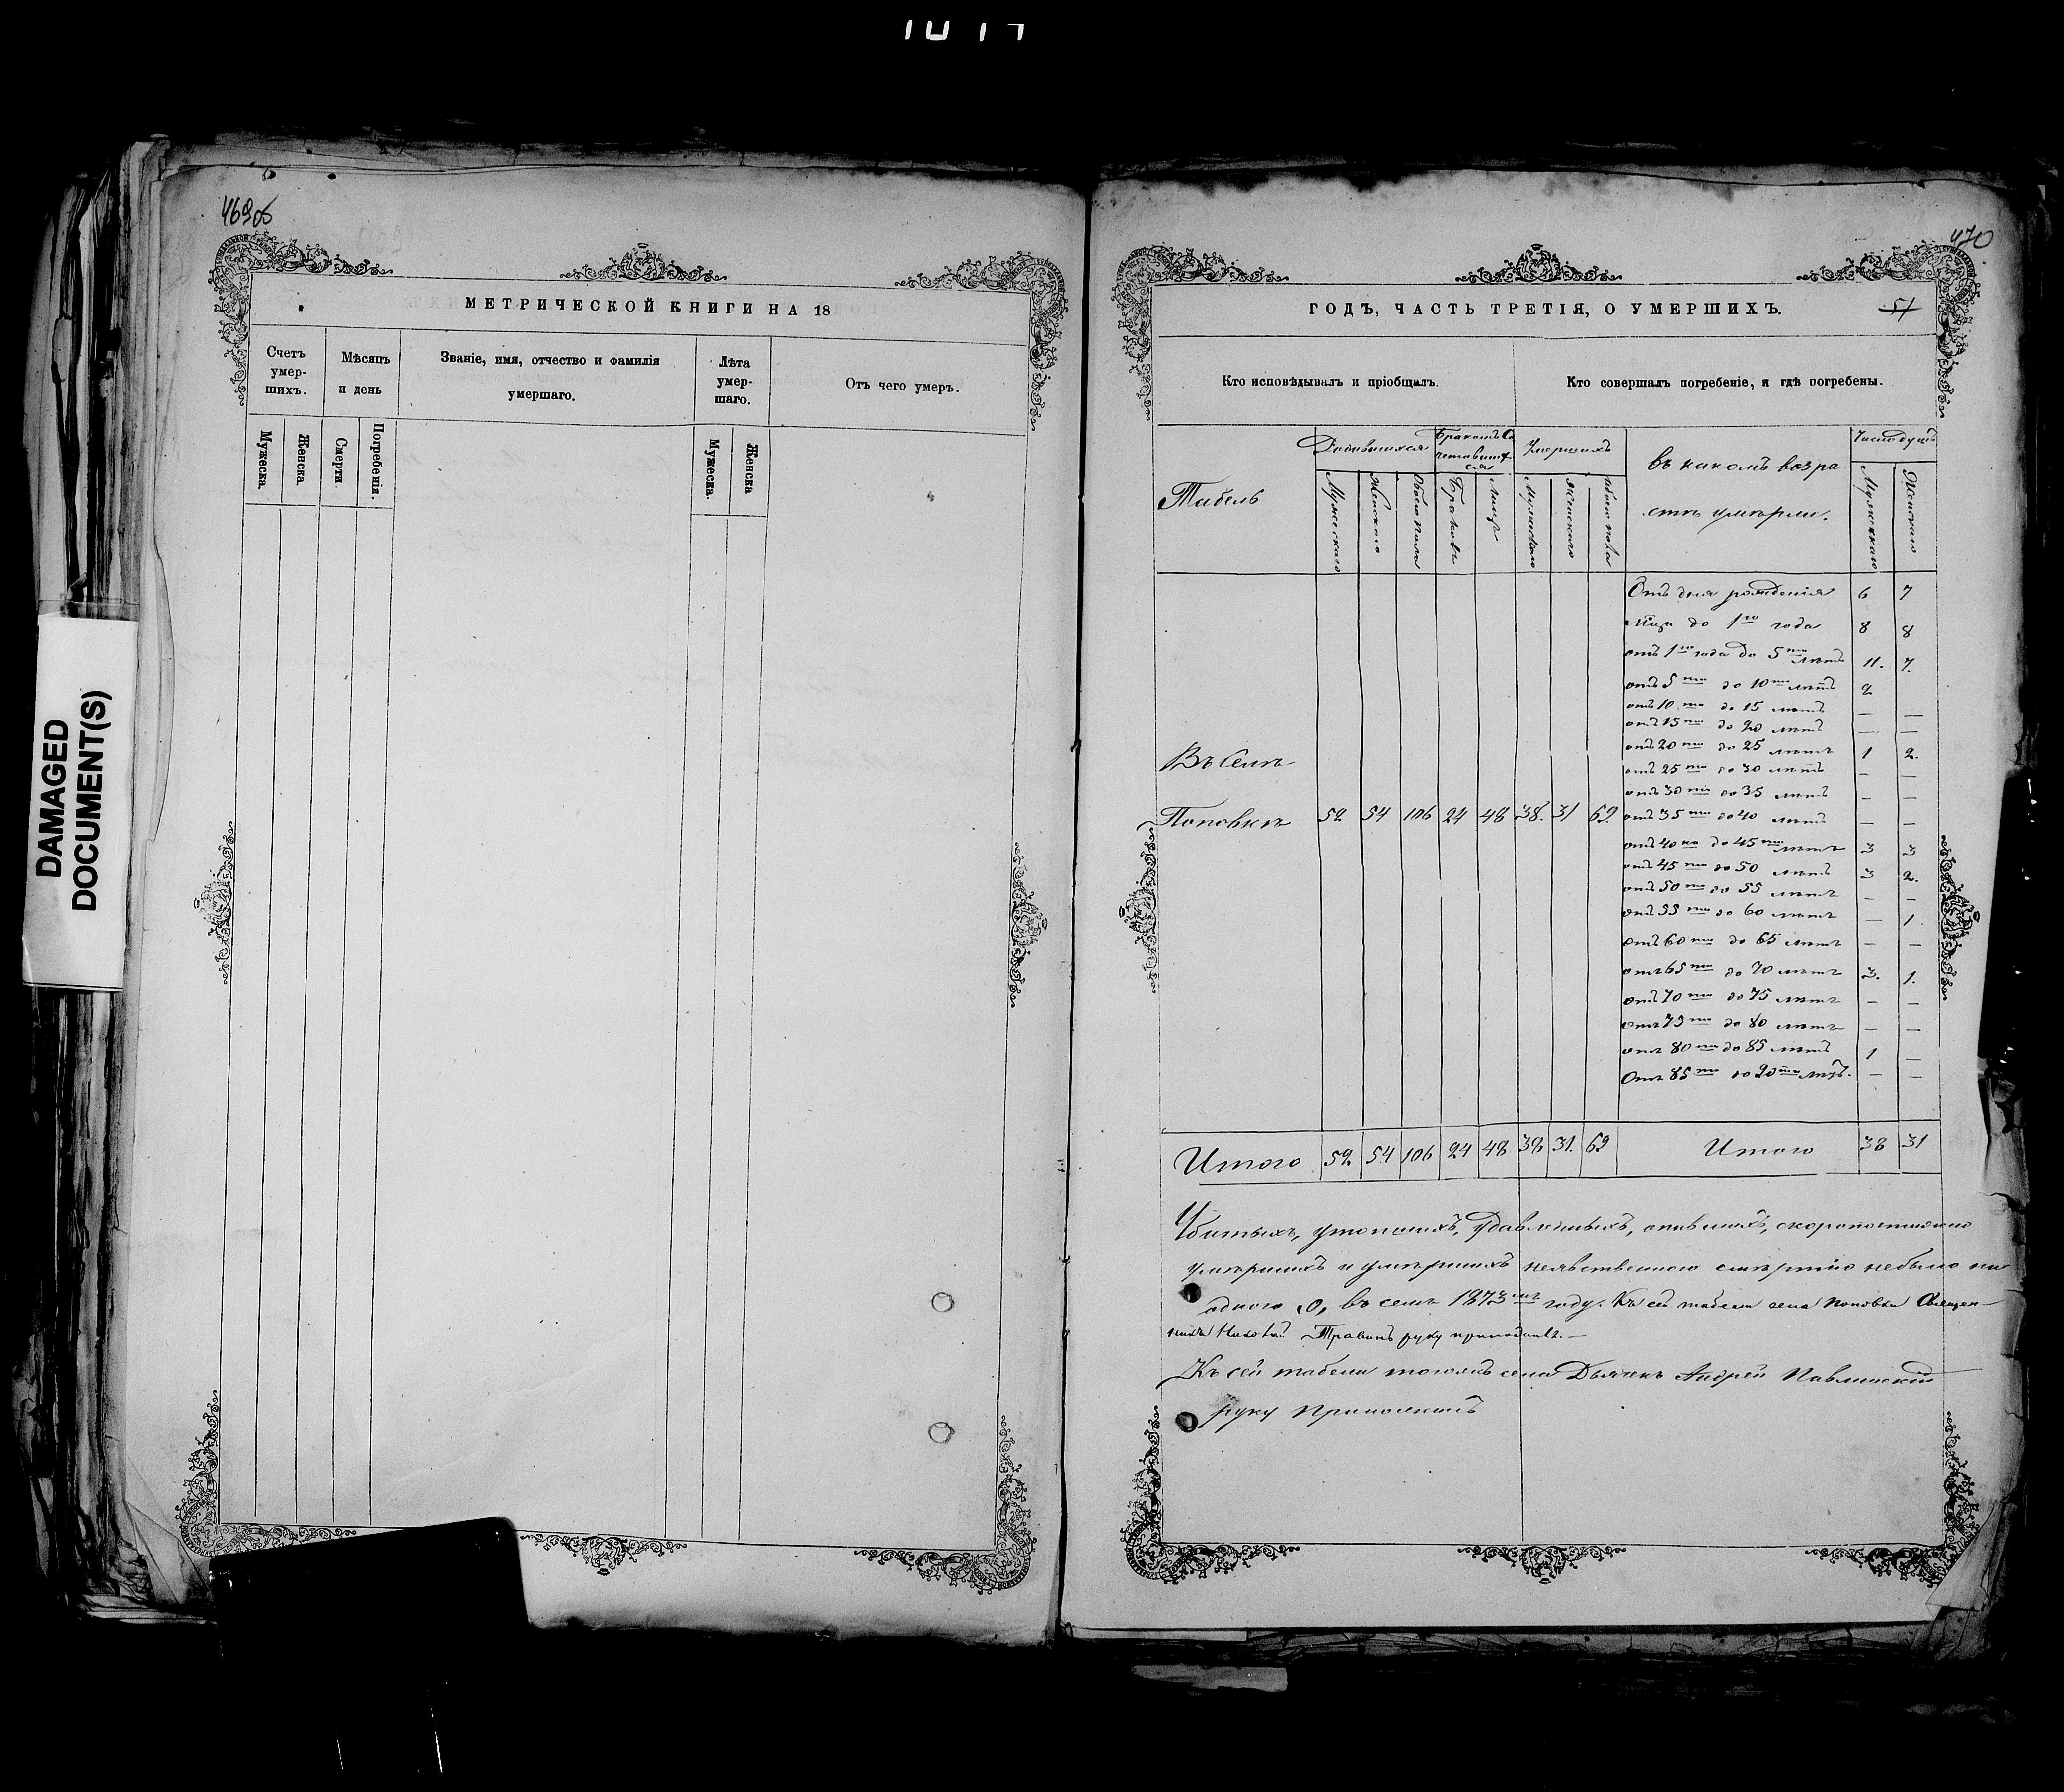 469об
МЕТРИЧЕСКОЙ КНИГИ НА 18
Счетъ умер-шихъ.
Мѣсяцъ и день
Званіе, имя, отчество и фамилія умершаго.
Лѣта умер-шаго.
Отъ чего умеръ.
Мужеска.
Женска.
Смерти.
Погребенія.
Мужеска.
Женска
DAMAGED
DOCUMENT(S)
470
ГОДЪ, ЧАСТЬ ТРЕТІЯ, О УМЕРШИХЪ.
51
Кто исповѣдывалъ и пріобщалъ.
Кто совершалъ погребеніе, и гдѣ погребены.
Табель
Родившихся
Бракомъ Со четавших ся
Умершихъ
въ какомъ возра стѣ умѣрли.
Число душъ
Мужескаго
Женскаго
Обоего пола
Браковъ
Лицъ
Мужескаго
Женскаго
Обоего пола
Мужескаго
Женскаго
Отъ дня рожденія 6 7
до 1го года 8 8
отъ 1го года до 5ти лѣтъ 11. 7.
отъ 5ти до 10ти лѣтъ 2
отъ 10ти до 15 лѣтъ — —
отъ 15ти до 20 лѣтъ — —
отъ 20ти до 25 лѣтъ 1 2.
отъ 25ти до 30 лѣтъ — —
отъ 30ти до 35 лѣтъ — —
Въ Селѣ
Поповкѣ 52 54 106 24 48 38. 31 69. отъ 35ти до 40 лѣтъ — —
отъ 40ка до 45ти лѣтъ 3 3
отъ 45ти до 50 лѣтъ 3 2.
отъ 50ти до 55 лѣтъ — —
отъ 55ти до 60 лѣтъ — 1.
отъ 60ти до 65 лѣтъ — —
отъ 65ти до 70 лѣтъ 3. 1.
отъ 70ти до 75 лѣтъ — —
отъ 75ти до 80 лѣтъ — —
отъ 80ти до 85 лѣтъ 1 —
Отъ 85ти до 90то лѣтъ. — —
Итого 52 54 106 24 48 38 31. 69 Итого 38 31
Убитыхъ, утопшихъ, удавленныхъ, опившихъ, скоропостижно
умѣршихъ и умѣршихъ неявственного смѣртію небыло ни
одного, 0, въ семъ 1873мъ году. Къ сей табели села Поповки Священ-
никъ Травинъ руку приложилъ.—
Къ сей табели тогожъ села Дьячекъ Андрей Павлинскій
руку Приложилъ